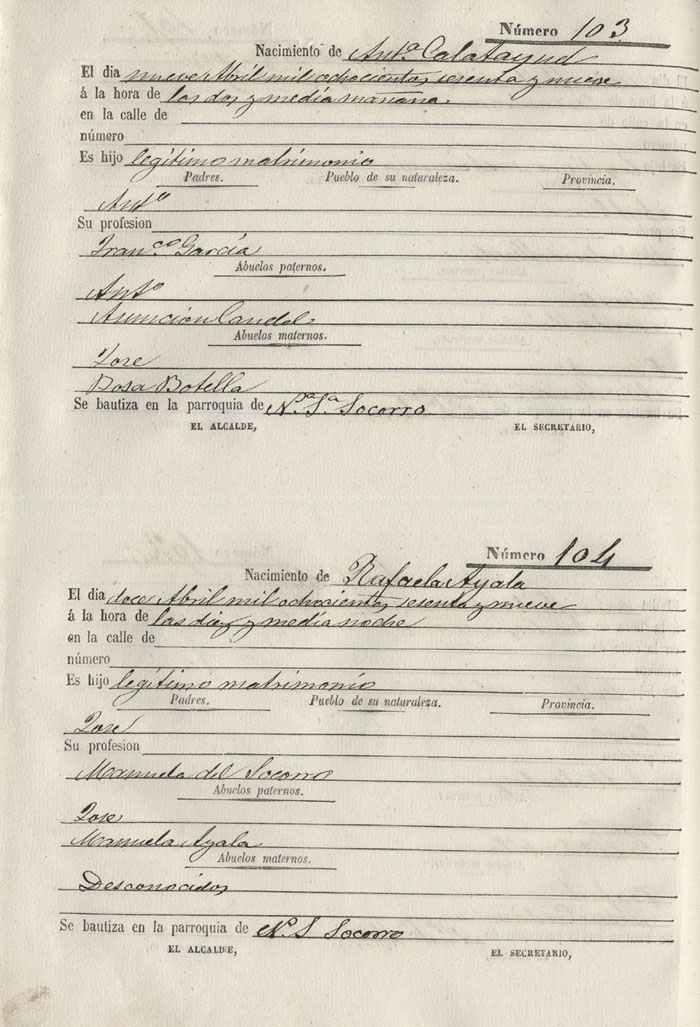 Número 103
Nacimiento de Antª Calatayud
El dia nueve Abril mil ochocientos sesenta y nueve
á la hora de las dos y media mañana
en la calle de
número
Es hijo legitimo matrimonio
Padres. Pueblo de su naturaleza. Provincia.
Antº
Su profesion
Francᶜᵃ García
Abuelos paternos.
Antº
Asunción Candel
Abuelos maternos.
Jose
Rosa Botella
Se bautiza en la parroquia de Nª Sª Socorro
EL ALCALDE, EL SECRETARIO,
Número 104
Nacimiento de Rafaela Ayala
El dia doce Abril mil ochocientos sesenta y nueve
á la hora de las diez y media noche
en la calle de
número
Es hijo legitimo matrimonio
Padres. Pueblo de su naturaleza. Provincia.
Jose
Su profesion
Manuela del Socorro
Abuelos paternos.
Jose
Manuela Ayala
Abuelos maternos.
Desconocidos
Se bautiza en la parroquia de Nª S Socorro
EL ALCALDE, EL SECRETARIO,